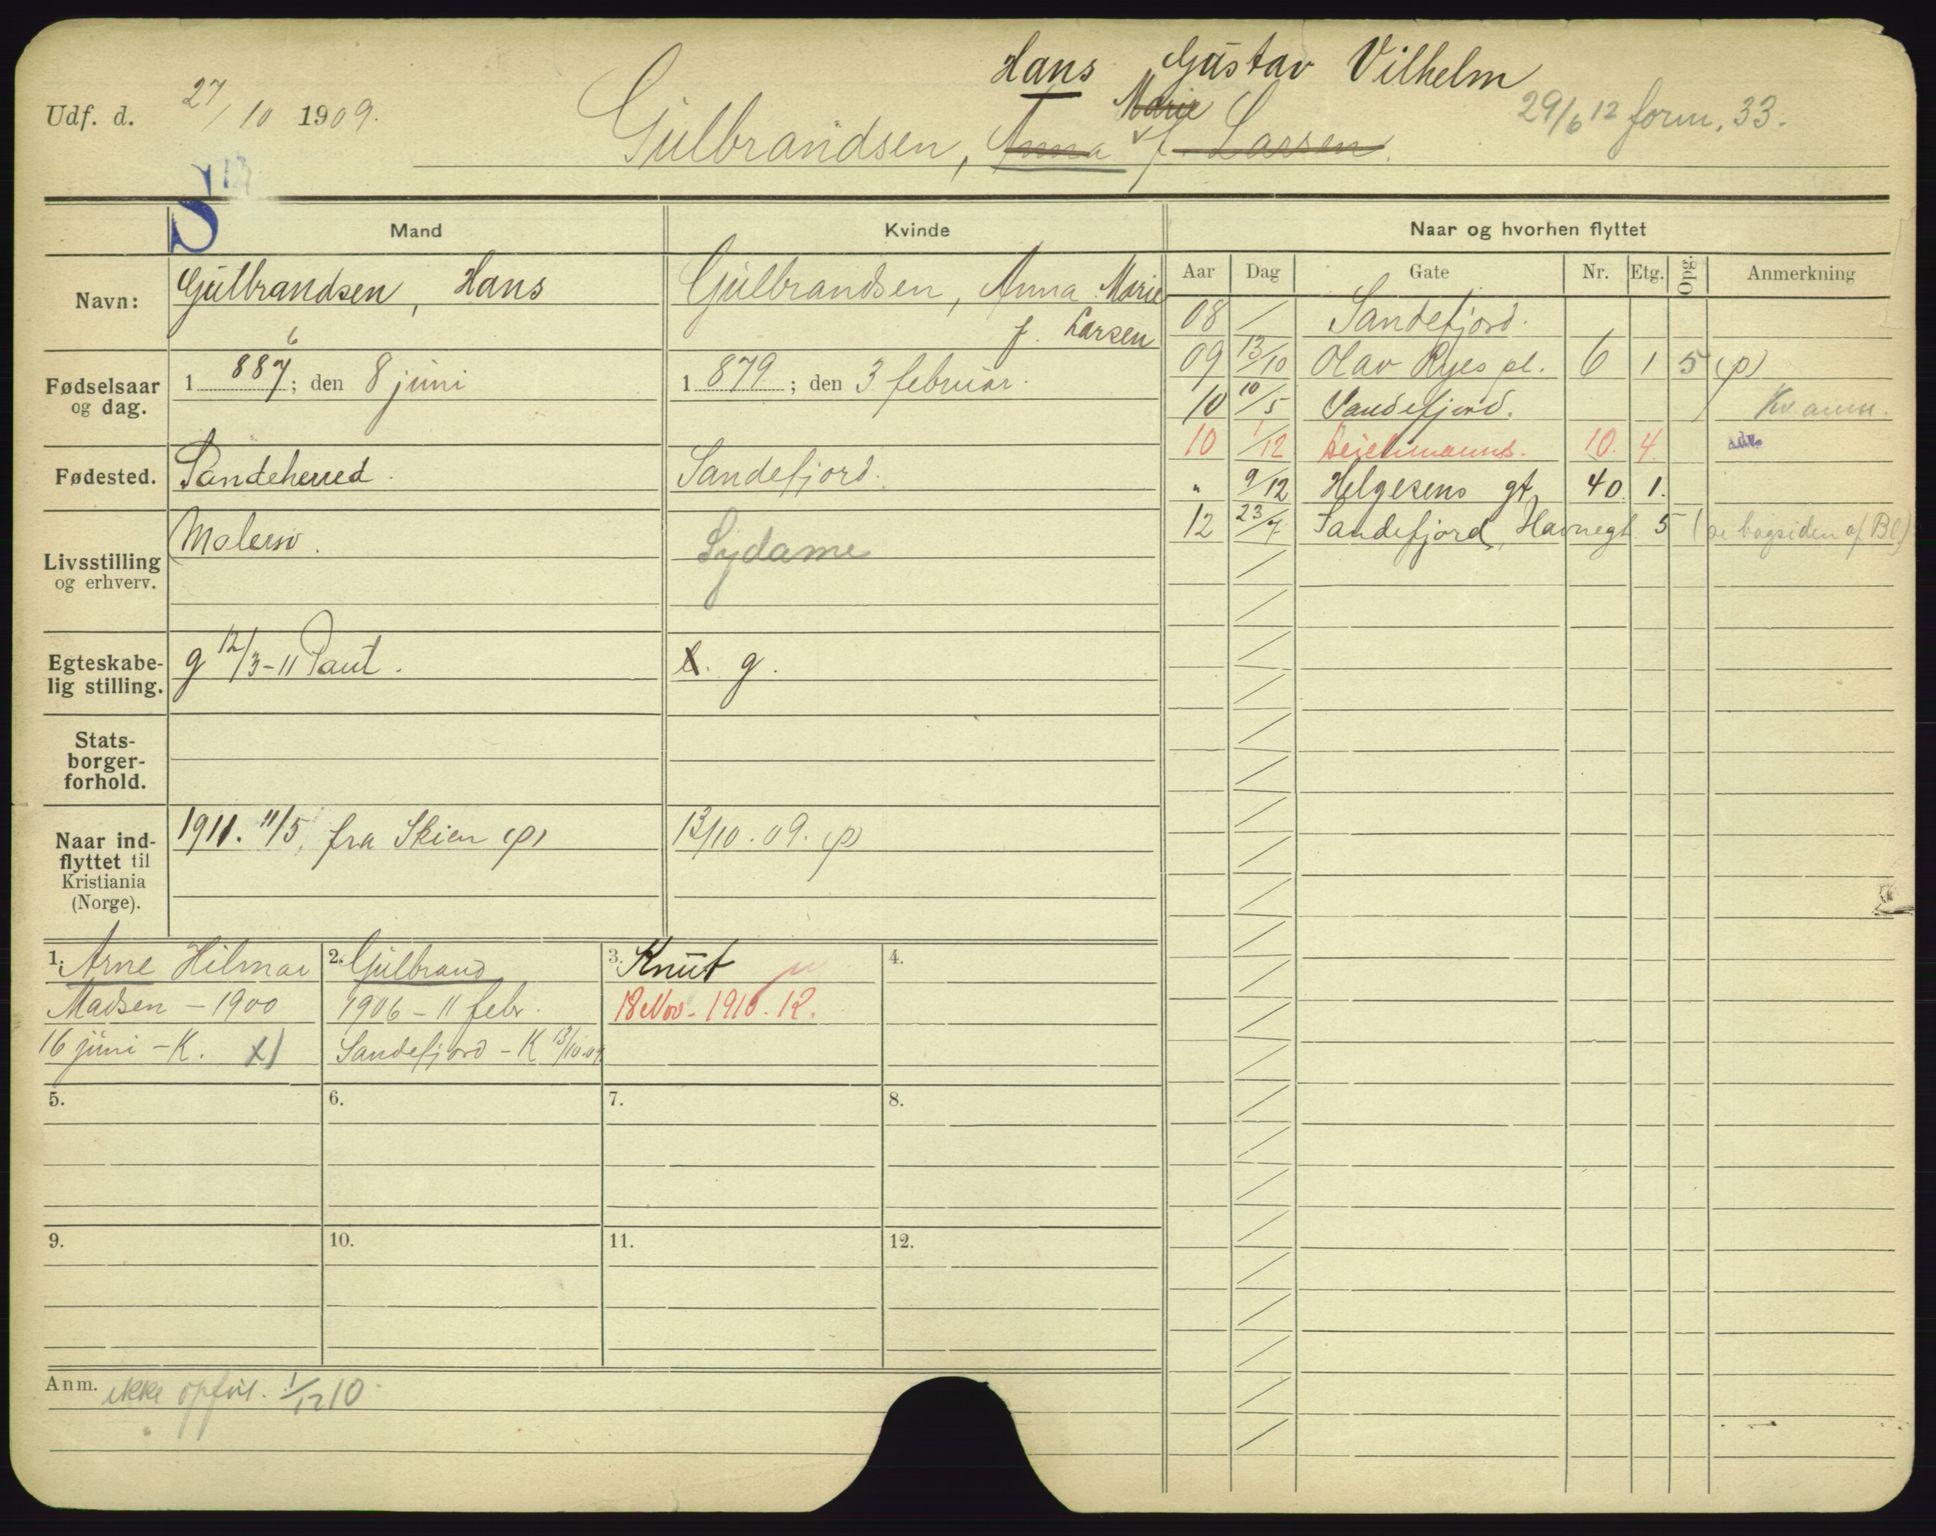 Hans Gustav Vilhelm
Udf. d. 27/10 1909.
Gulbrandsen, Anna Marie f. Larsen.
29/6 12 form. 33.
S
Mand
Kvinde
Naar og hvorhen flyttet
Aar Dag Gate Nr. Etg. Opg. Anmerkning
Navn:
Gulbrandsen, Hans
Gulbrandsen, Anna Marie
f. Larsen
Fødselsaar
og dag.
6
1 887 ; den 8 juni
1 879 ; den 3 februar.
Fødested.
Sandeherred.
Sandefjord.
Livsstilling
og erhverv.
Malersv.
Sydame
Egteskabe-
lig stilling.
g 12/3-11
e. g.
Stats-
borger-
forhold.
Naar ind-
flyttet til
Kristiania
(Norge).
1911. 11/5, fra Skien (p)
13/10. 09. (p)
08 / Sandefjord.
09 13/10 Olav Ryes pl. 6 1 5 (p)
10 10/5 Sandefjord. Kv. anm.
10 1/12 Deichmanns. 10. 4. adr.
" 9/12 Helgesens gt. 40. 1.
12 23/7 Sandefjord, Havnegt. 5 (se bagsiden af Bl.)
1. Arne Hilmar
Madsen - 1900
16 juni - K. x)
2. Gulbrand
1906 - 11 febr.
Sandefjord - K 13/10.09.
3. Knut
18 Nov. - 1910. 12.
4.
5.
6.
7.
8.
9.
10.
11.
12.
Anm. ikke 1/12 10.